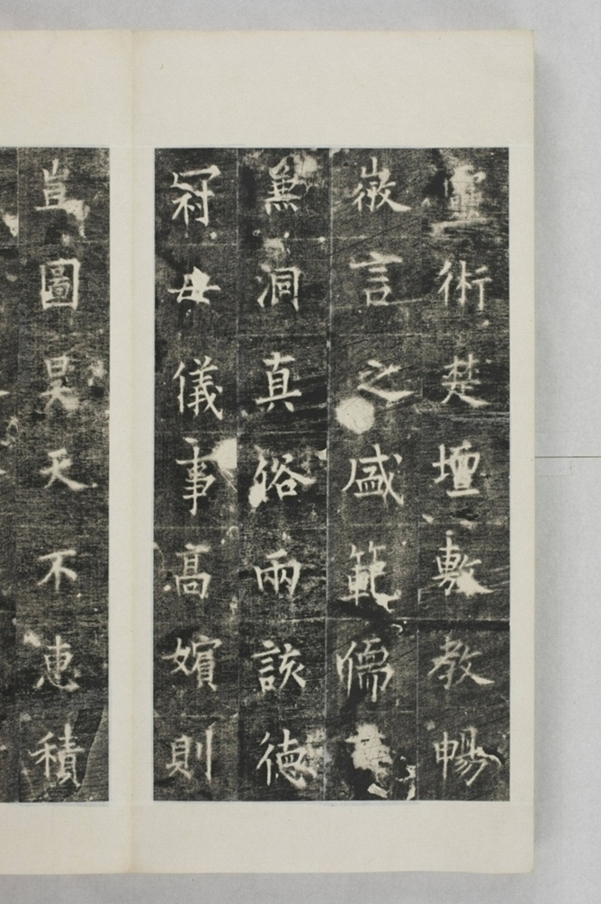 靈術楚壇敷教暢
微言之盛範儒
兼洞真俗兩該德
冠母儀事高嬪則
豈圖昊天不惠積